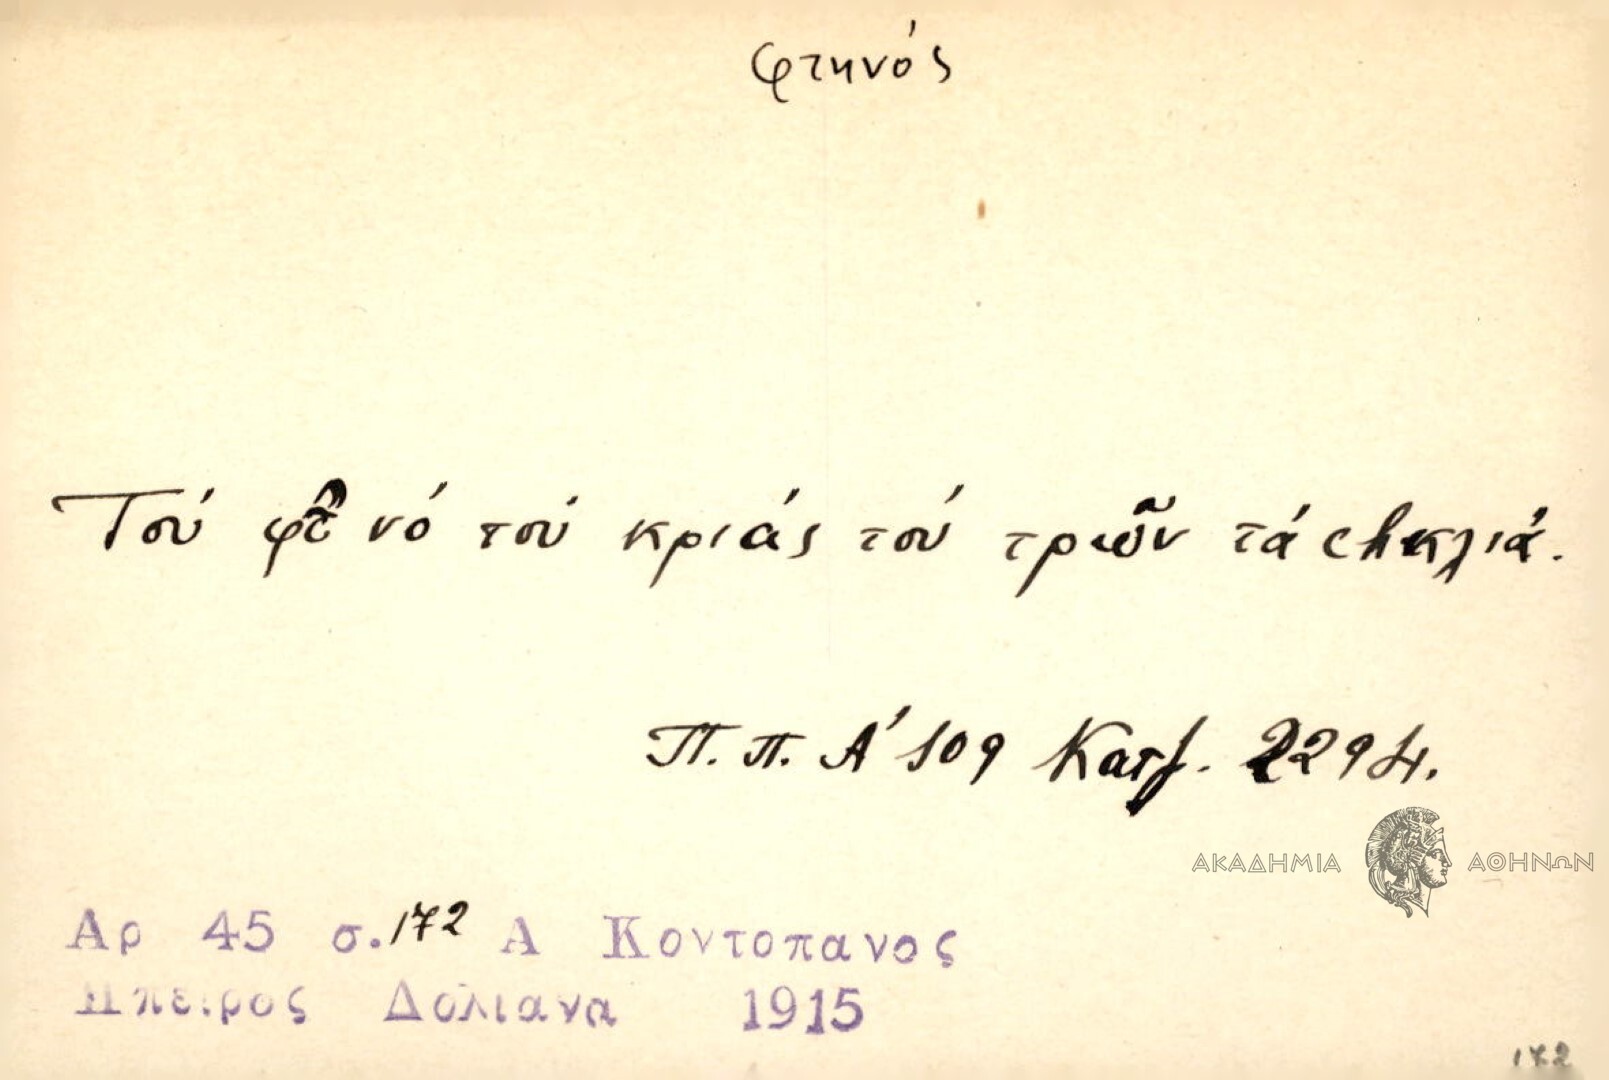 φτηνός
Τού φτ̑ νό τού κριάς τού τρων̃ τά σκλιά.
Π. π. Α' 109 Κατζ. 2294.
ΑΚΑΔΗΜΙΑ ΑΘΗΝΩΝ
Αρ 45 σ. 172 Α Κοντοπανος
Ηπειρος Δολιανα 1915
172